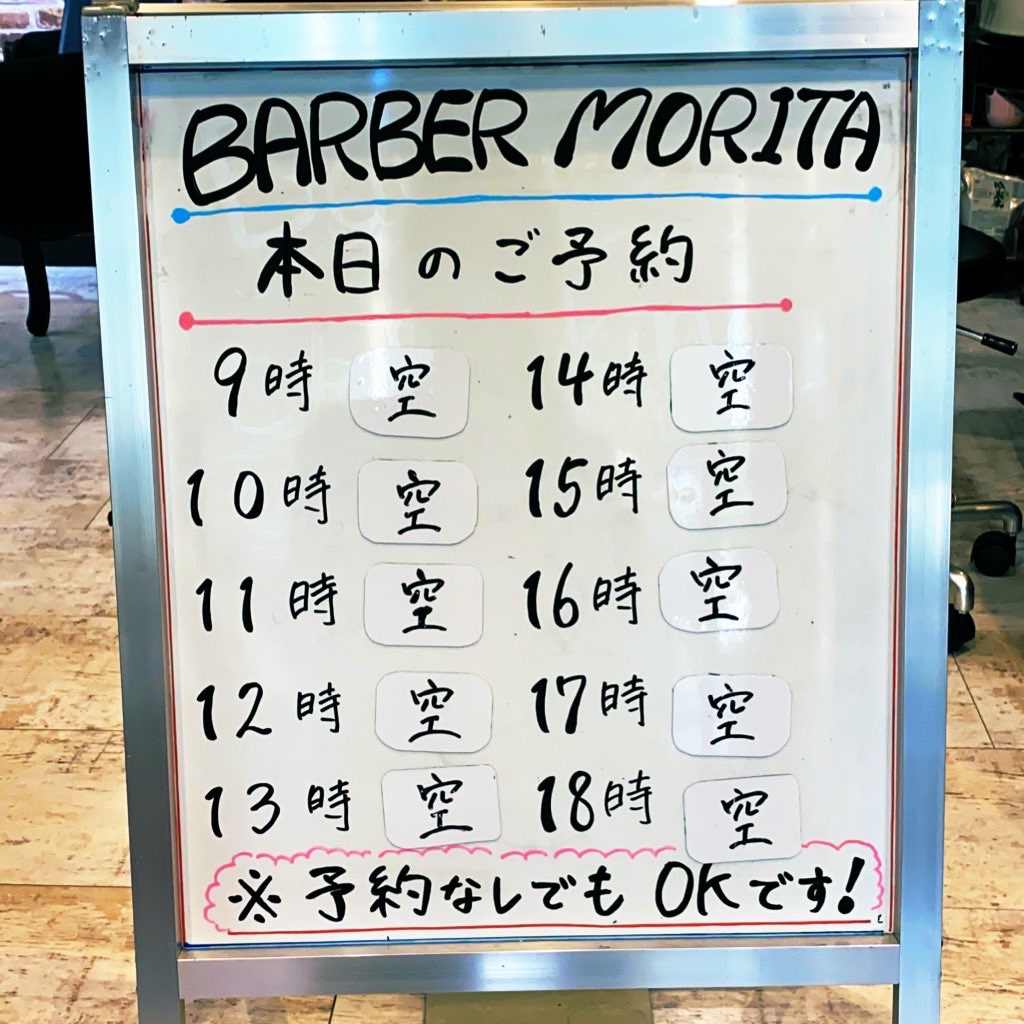 BARBER MORITA
本日のご予約
9時 空 14時 空
10時 空 15時 空
11時 空 16時 空
12時 空 17時 空
13時 空 18時 空
※予約なしでもOKです!